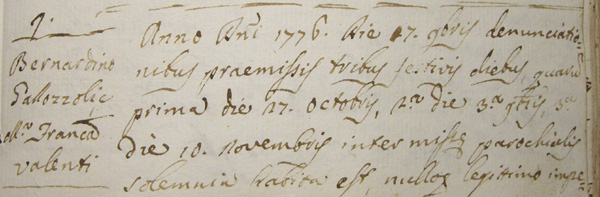 1.
Bernardino
Palozzolic
Mª Francª
Valenti
Anno Dnī 1776. Die 17. 9bris denunciatio=
nibus praemissis tribus festivis diebus, quaru
prima die 27. Octobris, 2ª die 3ª 9bris, 3ª
die 10. Novembris inter missę parochialis
solemnia habita est, nulloq legittimo impe=